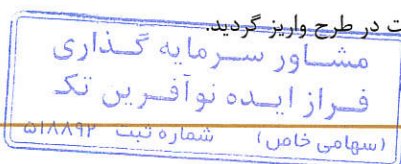 ت در طرح واریز گردید.
مشاور سرمایه گذاری
فراز ایده نوآفرین تک
(سهامی خاص) شماره ثبت ۵۱۸۸۹۲